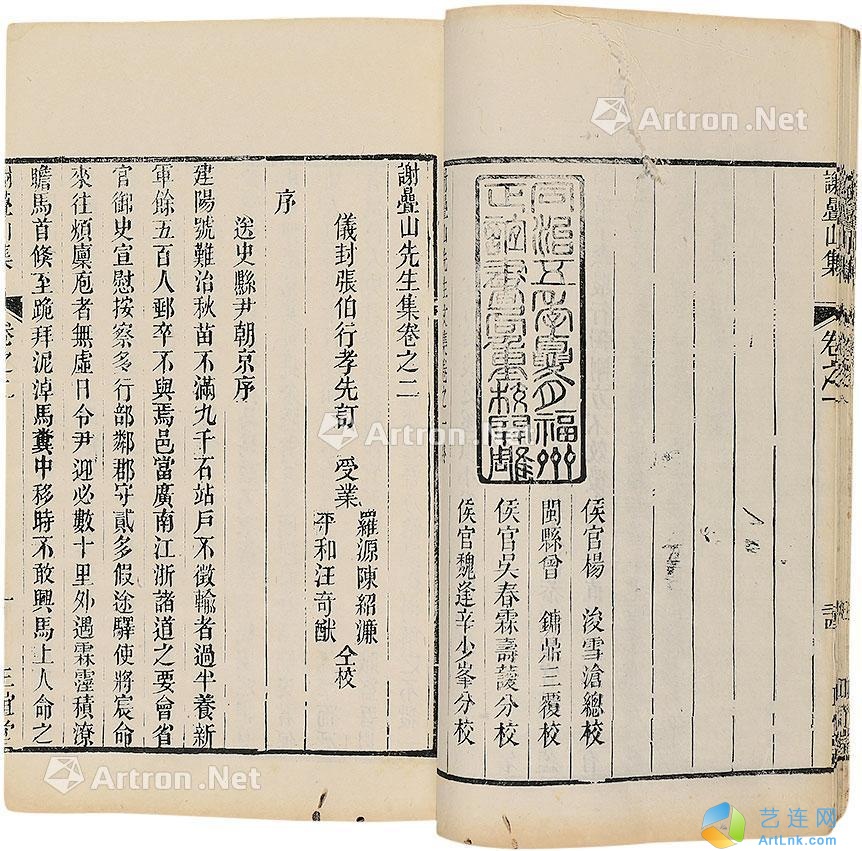 謝疊山集
卷之一
同治五年夏月福州
正誼書局重校開雕
侯官楊浚雪滄總校
閩縣曾鏞鼎三覆校
侯官吳春霖壽薐分校
侯官魏逢辛少峯分校
謝疊山先生集卷之二
儀封張伯行孝先訂
受業
羅源陳紹濂
平和汪奇猷
仝校
序
送史縣尹朝京序
建陽號難治秋苗不滿九千石站戶不徵輸者過半養新
軍餘五百人郵卒不與焉邑當廣南江浙諸道之要會省
官御史宣慰按察冬行部鄰郡守貳多假途驛使將宸命
來往煩廩庖者無虛日令尹迎必數十里外遇霖霪積潦
瞻馬首倏至跪拜泥淖馬糞中移時不敢興馬上人命之
謝疊山集
卷之二
一
正誼堂
Artron.Net
Artron.Net
Artron.Net
Artron.Net
Artron.Net
艺连网
ArtLnk.com